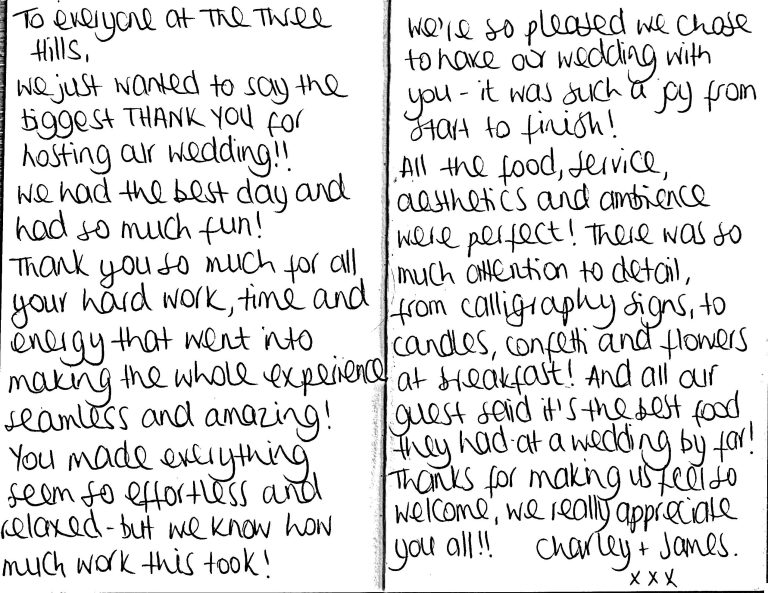 To everyone at The Three
Hills,
we just wanted to say the
biggest THANK YOU for
hosting our wedding!!
we had the best day and
had so much fun!
Thank you so much for all
your hard work, time and
energy that went into
making the whole experience
seamless and amazing!
You made everything
seem so effortless and
relaxed - but we know how
much work this took!
we're so pleased we chose
to have our wedding with
you - it was such a joy from
start to finish!
All the food, service,
aesthetics and ambience
were perfect! There was so
much attention to detail,
from calligraphy signs, to
candles, confetti and flowers
at breakfast! And all our
guest said it's the best food
they had at a wedding by far!
Thanks for making us feel so
welcome, we really appreciate
you all!! Charley + James.
x x x